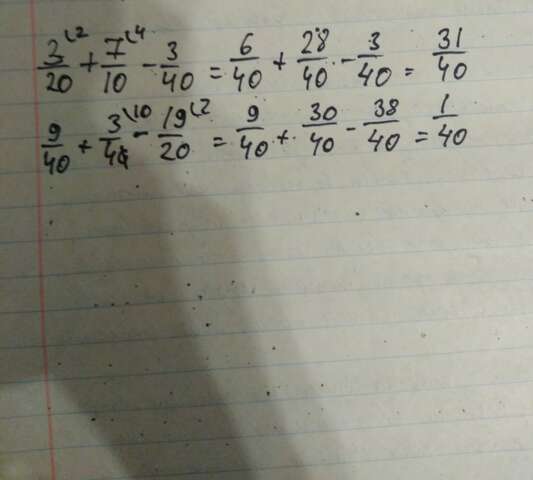 3/20⁽² + 7/10⁽⁴ - 3/40 = 6/40 + 28/40 - 3/40 = 31/40
9/40 + 3/4⁽¹⁰ - 19/20⁽² = 9/40 + 30/40 - 38/40 = 1/40